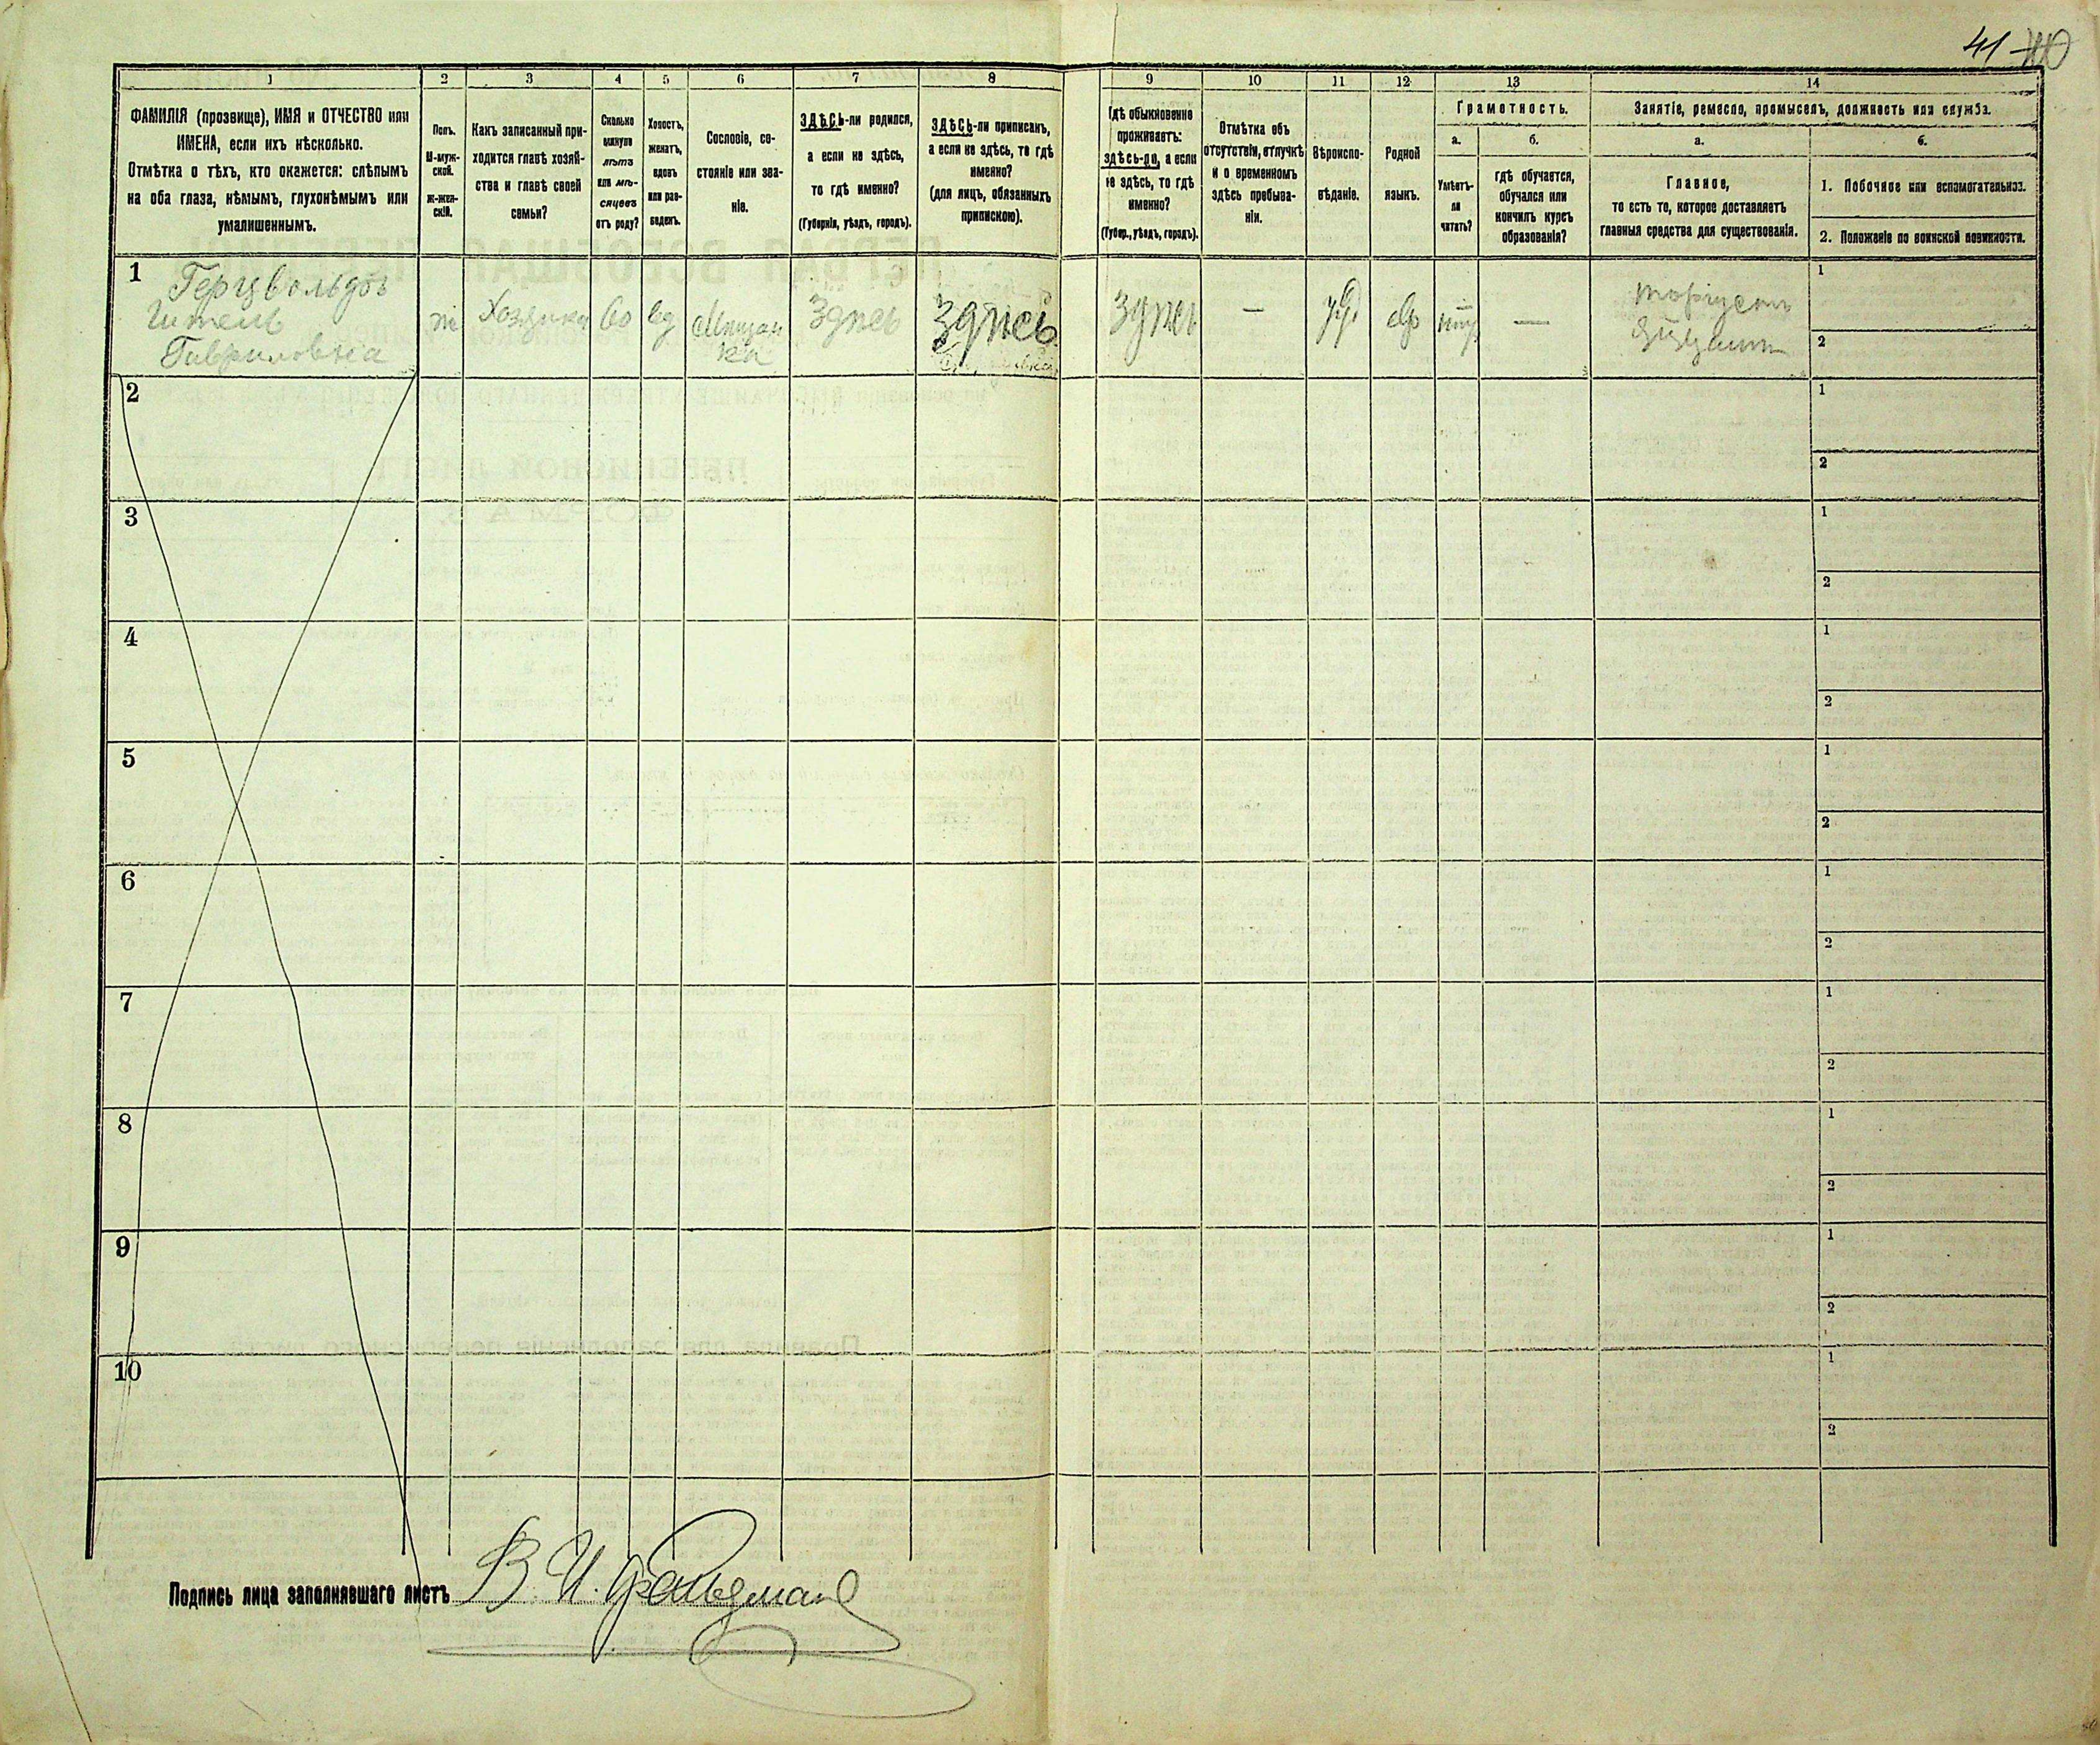 41 40
1
2
3
4
5
6
7
8
9
10
11
12
13
14
ФАМИЛІЯ (прозвище), ИМЯ и ОТЧЕСТВО или
ИМЕНА, если ихъ нѣсколько.
Отмѣтка о тѣхъ, кто окажется: слѣпымъ
на оба глаза, нѣмымъ, глухонѣмымъ или
умалишеннымъ.
Полъ.
М-муж-
ской.
ж-жен-
скій.
Какъ записанный при-
ходится главѣ хозяй-
ства и главѣ своей
семьи?
Сколько
минуло
лѣтъ
или мѣ-
сяцевъ
отъ роду?
Холостъ,
женатъ,
вдовъ
или раз-
веденъ.
Сословіе, со-
стояніе или зва-
ніе.
ЗДѢСЬ-ли родился,
а если не здѣсь,
то гдѣ именно?
(Губернія, уѣздъ, городъ).
ЗДѢСЬ-ли приписанъ,
а если не здѣсь, то гдѣ
именно?
(для лицъ, обязанныхъ
припискою).
Гдѣ обыкновенно
проживаетъ:
здѣсь-ли, а если
не здѣсь, то гдѣ
именно?
(Губер., уѣздъ, городъ).
Отмѣтка объ
отсутствіи, отлучкѣ
и о временномъ
здѣсь пребыва-
ніи.
Вѣроиспо-
вѣданіе.
Родной
языкъ.
Грамотность.
а.
б.
Умѣетъ-
ли
читать?
гдѣ обучается,
обучался или
кончилъ курсъ
образованія?
Занятіе, ремесло, промыселъ, должность или служба.
а.
б.
Главное,
то есть то, которое доставляетъ
главныя средства для существованія.
1. Побочное или вспомогательное.
2. Положеніе по воинской повинности.
1
Гитель
Гавриловна
ж
Хозяйка
60
вд
Мѣщан
ка
Здѣсь
Здѣсь
Здѣсь
—
—
1
2
2
1
2
3
1
2
4
1
2
5
1
2
6
1
2
7
1
2
8
1
2
9
1
2
10
1
2
Подпись лица заполнявшаго листъ